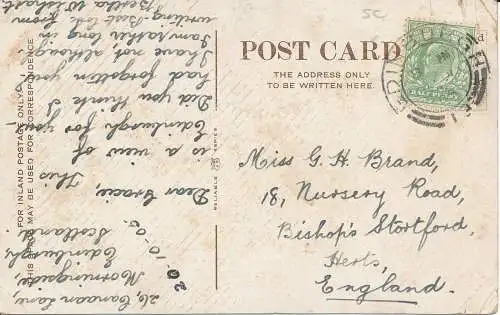 POST CARD
THE ADDRESS ONLY
TO BE WRITTEN HERE.
5c
EDINBURGH
Miss G. H. Brand,
18, Nursery Road,
Bishop's Stortford,
Herts,
England.
FOR INLAND POSTAGE ONLY
THIS SPACE MAY BE USED FOR CORRESPONDENCE
RELIABLE
SERIES
26, Canaan Lane,
Morningside,
Edinburgh,
Scotland.
Dear Gracie, This
is a view of
Edinburgh for you.
Did you think I
had forgotten you
I have not although
I am rather long in
writing. Best love from
Bertha